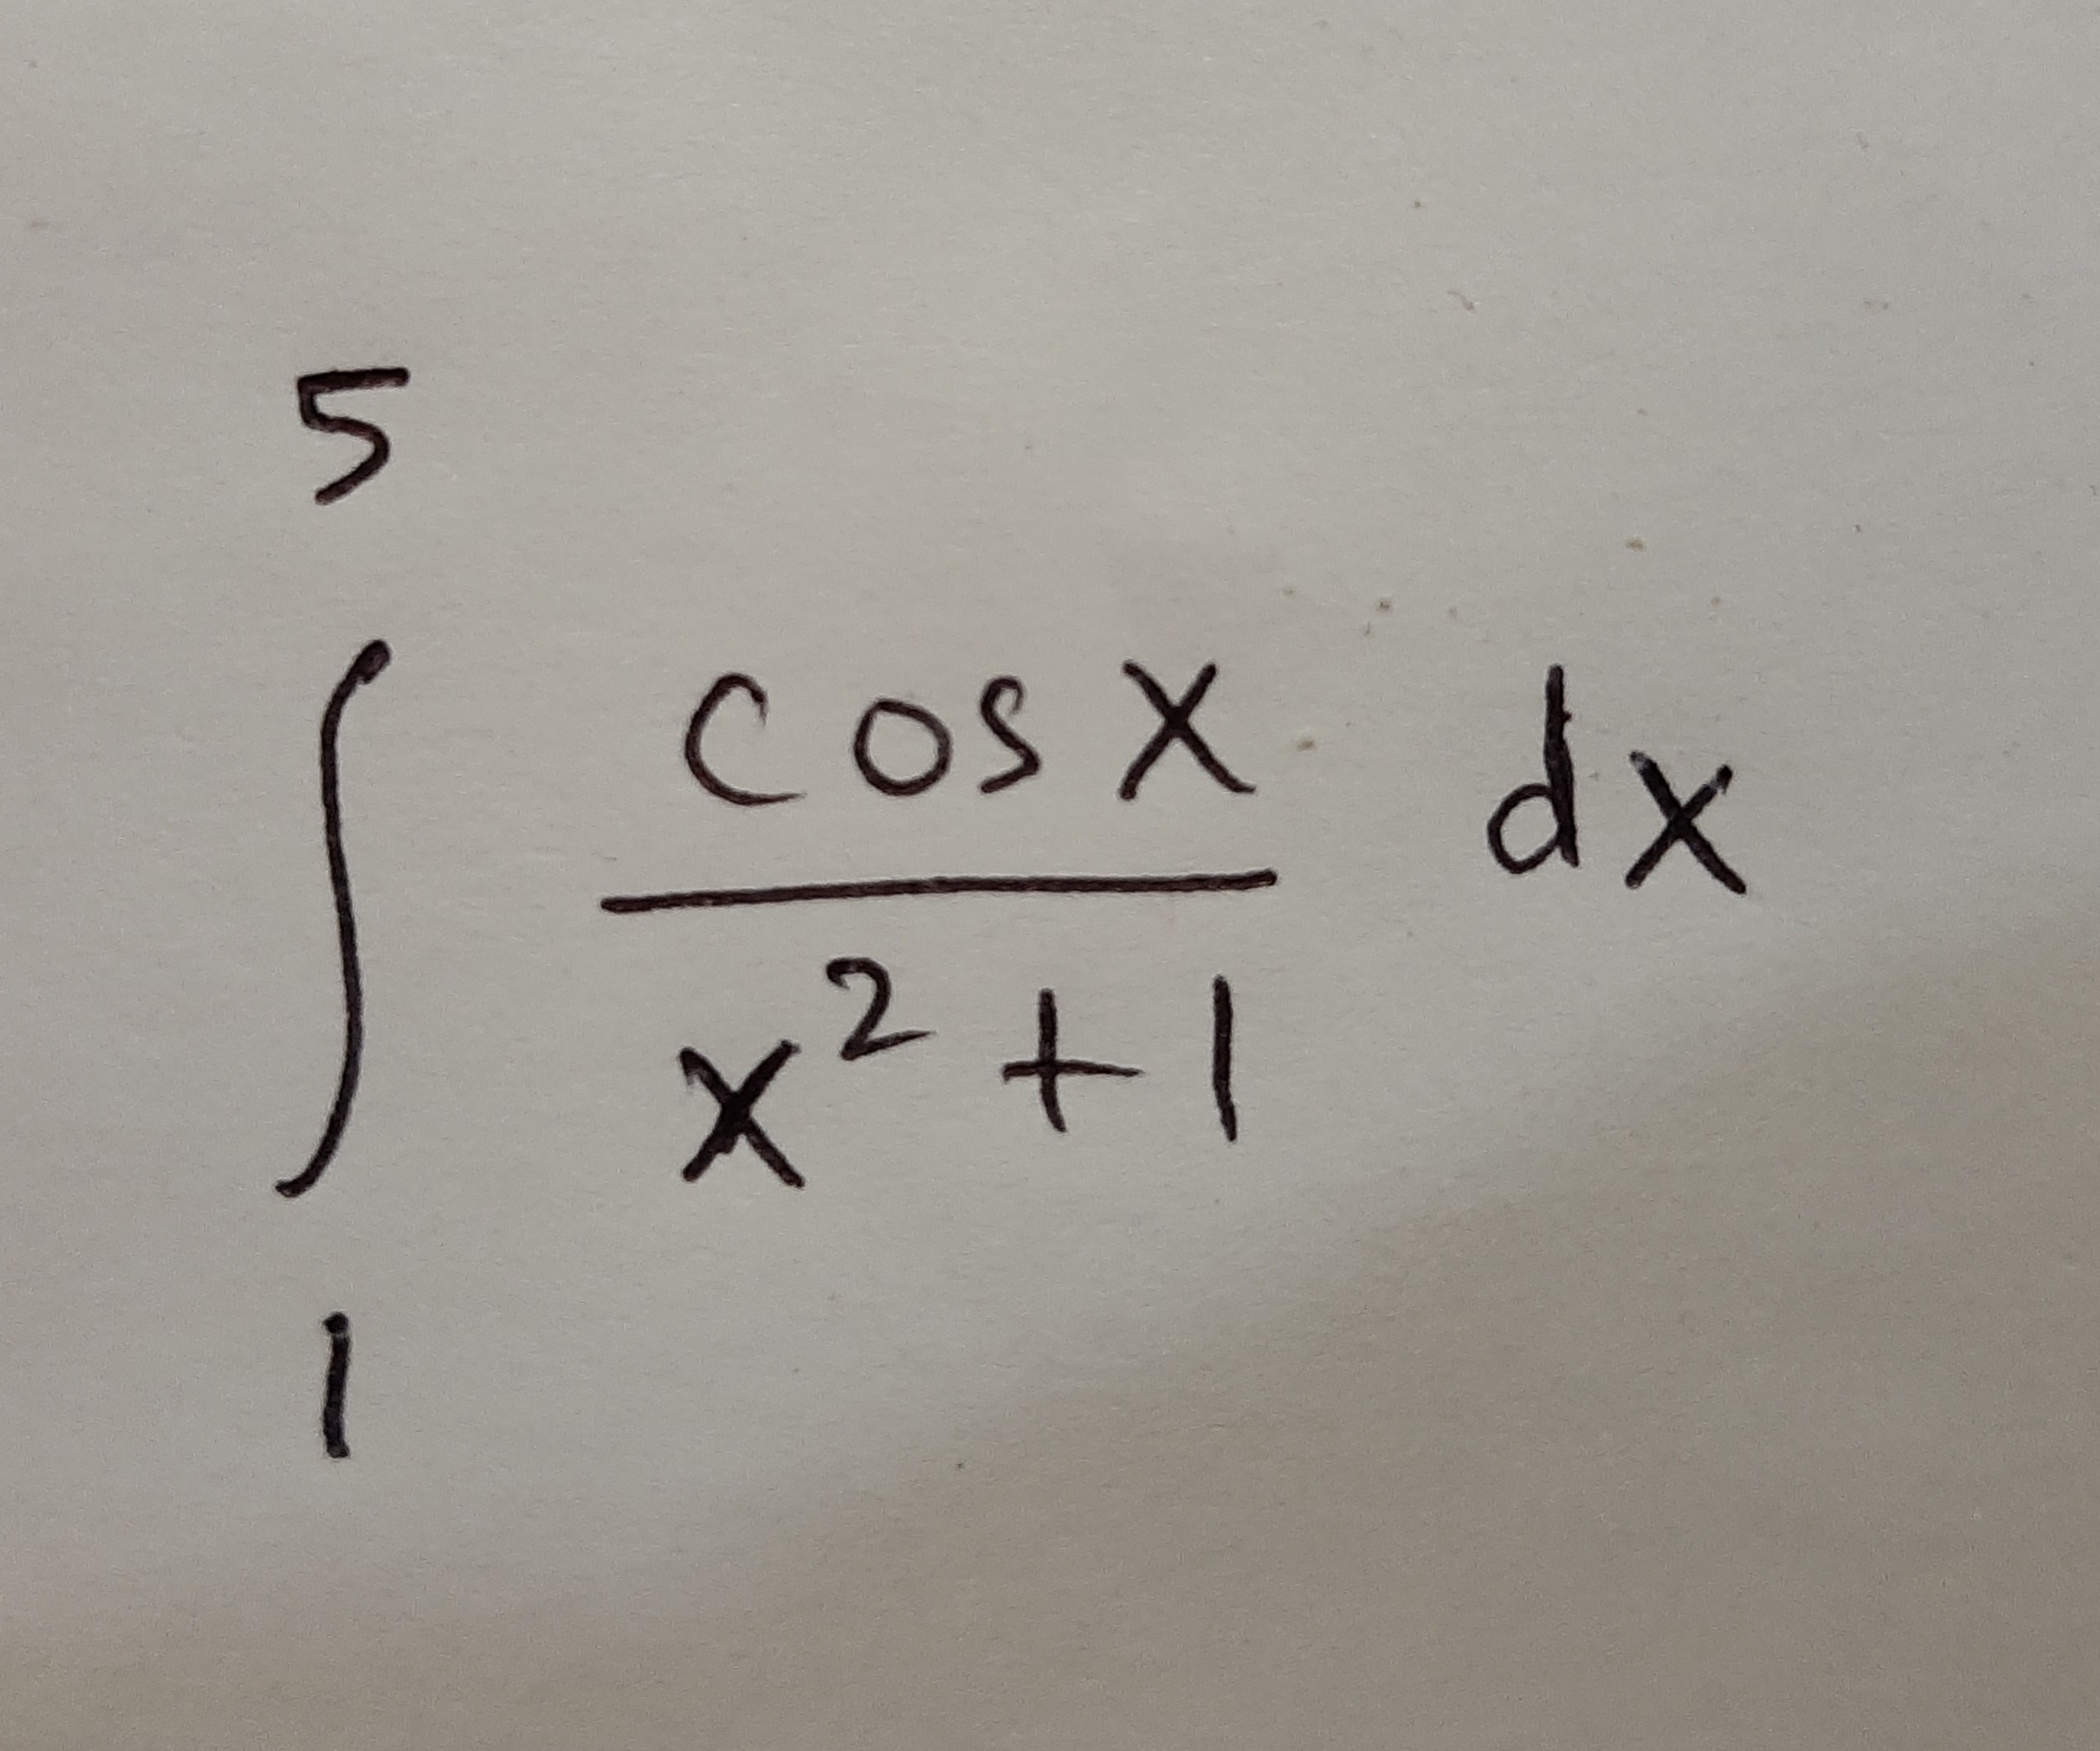 5
∫ cos x / x² + 1 dx
1